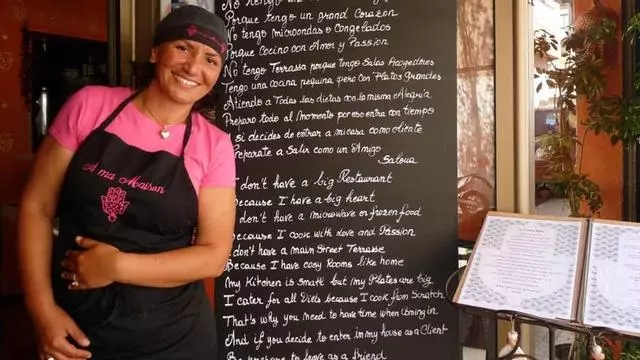 A ma Maison
No tengo un
Porque tengo un grand Corazon
No tengo microondas o Congelados
Porque Cocino con Amor y Passion
No Tengo Terrassa porque tengo Salas Acogedores
Tengo una cocina pequina pero con Platos Grandes
Atiendo a Todas las dietas con la misma Alegria
Preparo todo al Momento por eso entra con tiempo
si decides de entrar a mi casa como cliente
Preparate a Salir como un Amigo
Saloua
I don't have a big Restaurant
Because I have a big heart
I don't have a microwave or frozen food
Because I cook with love and Passion
I don't have a main Street Terrasse
Because I have cosy Rooms like home
My Kitchen is small but my Plates are big
I cater for all Diets because I cook from Scratch
That's why you need to have time when Coming in
And if you decide to enter in my house as a Client
Be prepare to leave as a friend